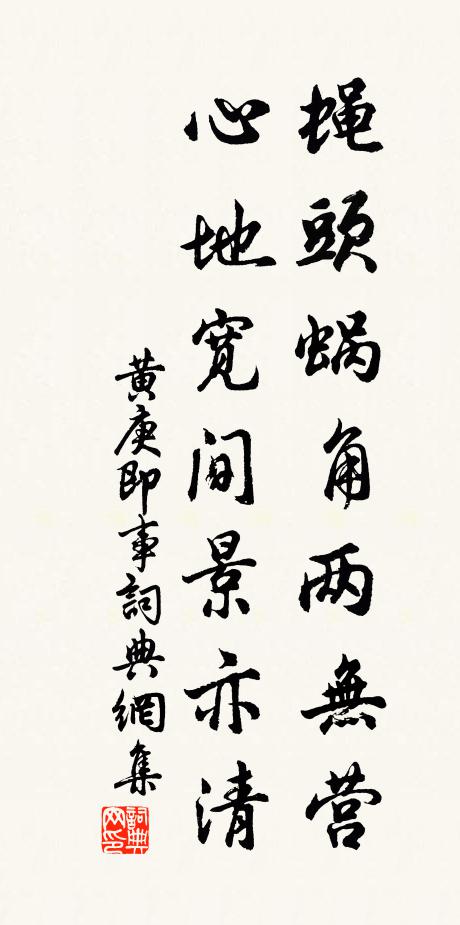 蝇頭蜗角两無营
心地宽间景亦清
黄庚即事詞典網集
詞典网印